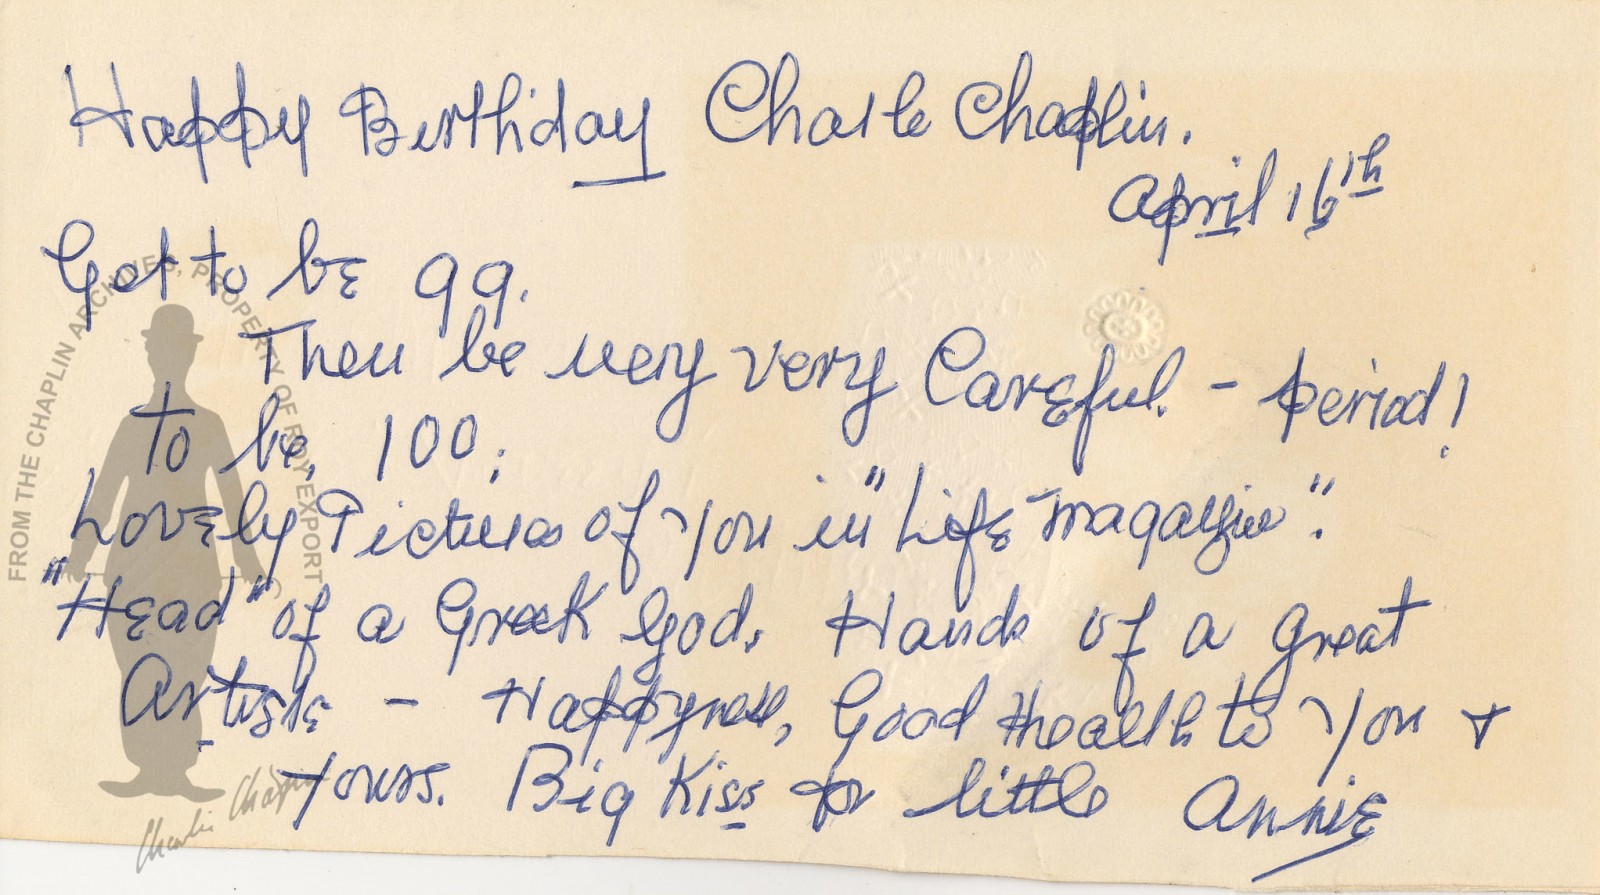 Happy Birthday Charle Chaplin.
April 16th
Get to be 99.
Then be very very Careful. - period!
to be, 100.
Lovely Pictures of you in "Life magazine".
"Head" of a Greek God. Hands of a great
Artiste - Happyness, Good Health to you +
yours. Big Kiss for little Annie
FROM THE CHAPLIN ARCHIVES, PROPERTY OF ROY EXPORT
Charlie Chaplin